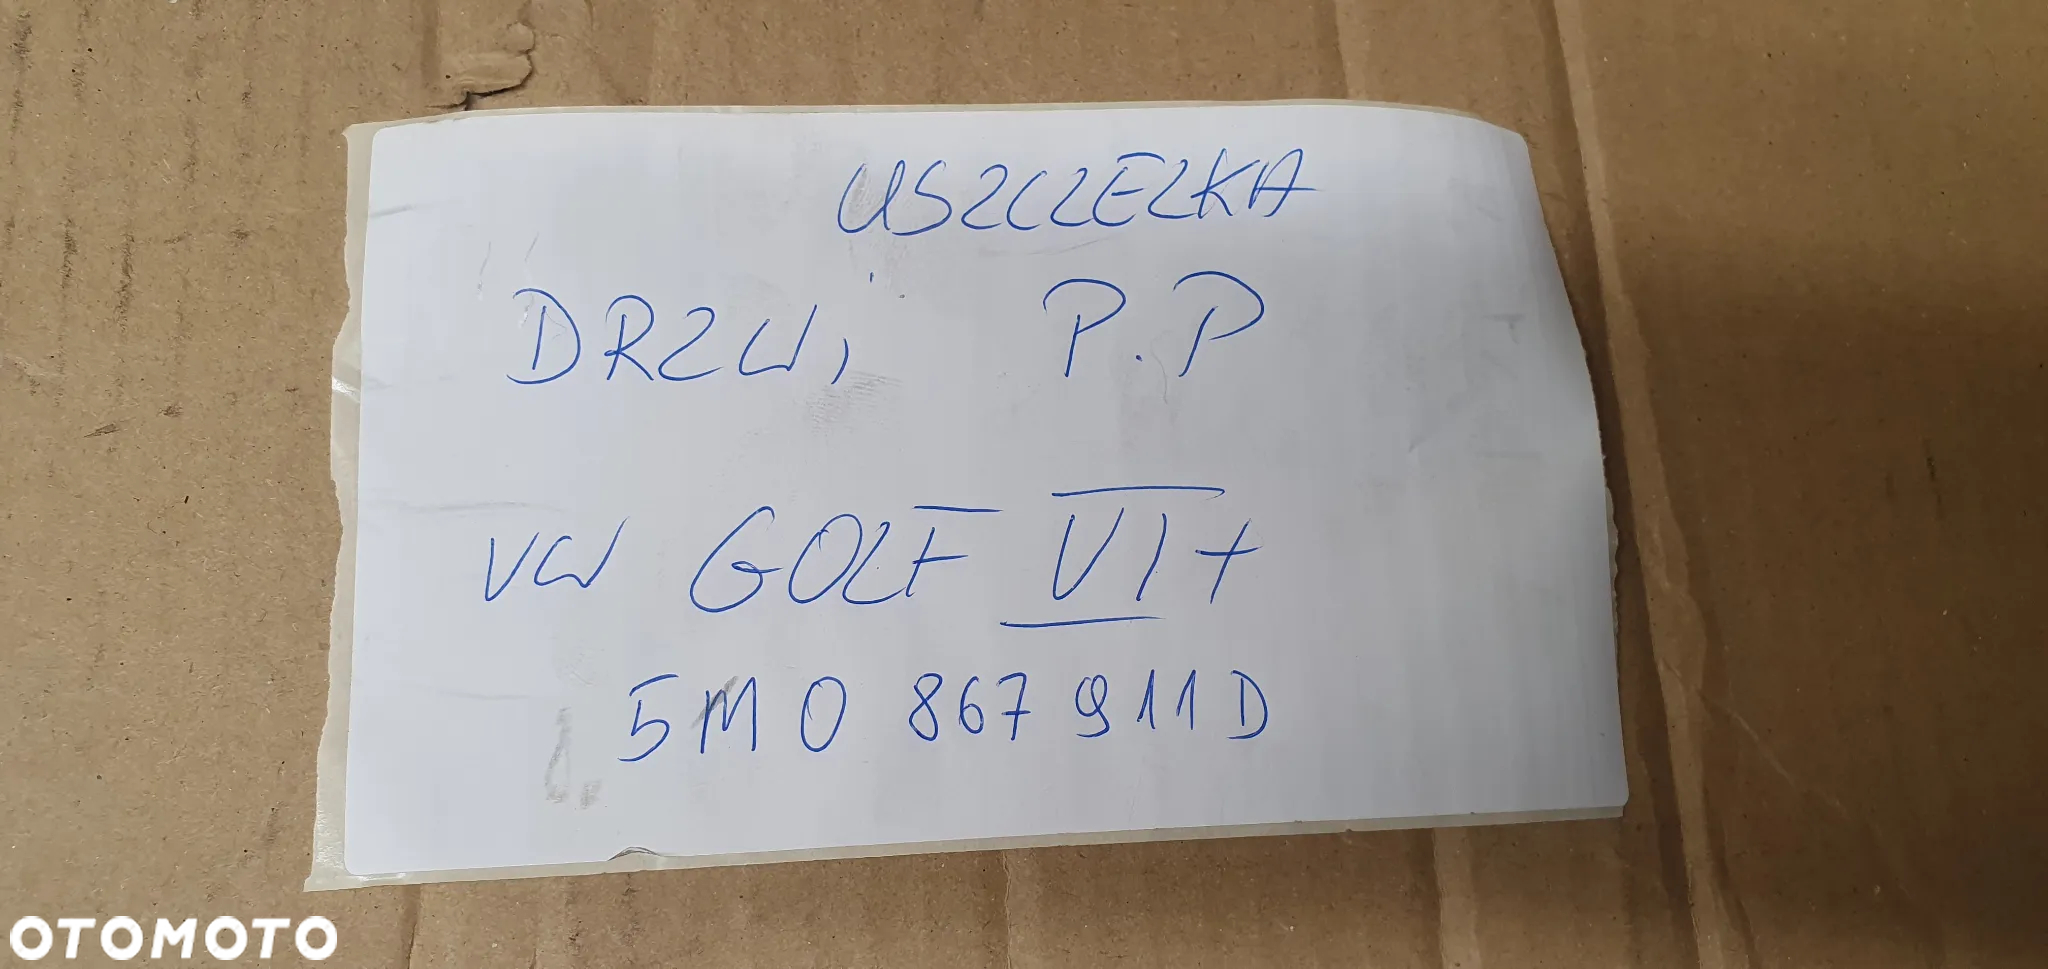 USZCZEZKA
DRZWi P.P
VW GOLF VI+
5M0 867 911D
OTOMOTO